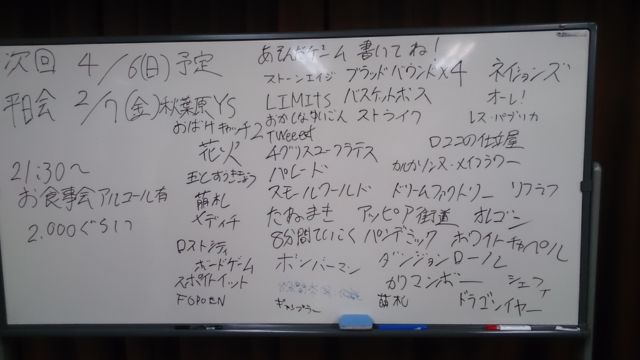 次回 4/6(日)予定
平日会 2/7(金)秋葉原YS
21:30～
お食事会アルコール有
2.000ぐらい
あそんだゲーム 書いてね!
ストーンエイジ ブラッドバウンド×4 ネイションズ
LIMITS バスケットボス オーレ!
おかしなれいごん ストライク レス・パブリカ
おばけキャッチ2 Tweeeet ロココの仕立屋
花火 チグリスユーフラテス カルカソンヌ・メイフラワー
パレード
萠札 スモールワールド ドリームファクトリー リフラフ
メディチ たねまき アッピア街道 オレゴン
8分間ていこく パンデミック ホワイトチャペル
ロストシティ
ボードゲーム ボンバーマン ダンジョンロール
スポットイット カワマンボー シェフィ
ギャンブラー 萠札 ドラゴンイヤー